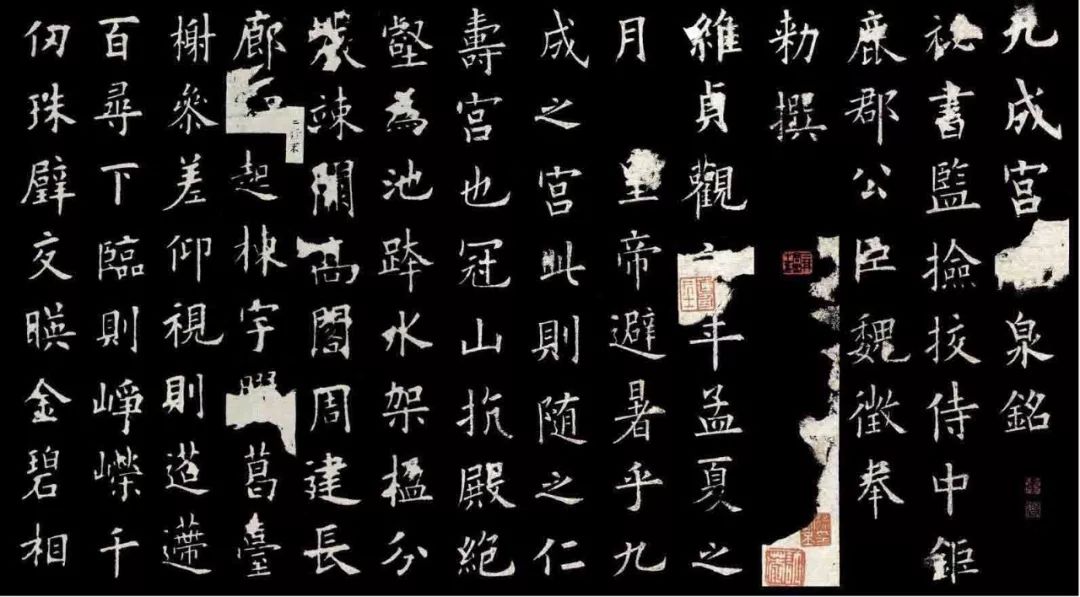 九成宮泉銘
祕書監撿挍侍中鉅
鹿郡公臣魏徵奉
勑撰
維貞觀年孟夏之
月皇帝避暑乎九
成之宮此則随之仁
壽宮也冠山抗殿絶
壑為池跨水架楹分
巖竦闕高閣周建長
廊起棟宇葛臺
榭叅差仰視則迢遰
百尋下臨則崢嶸千
仞珠璧交暎金碧相